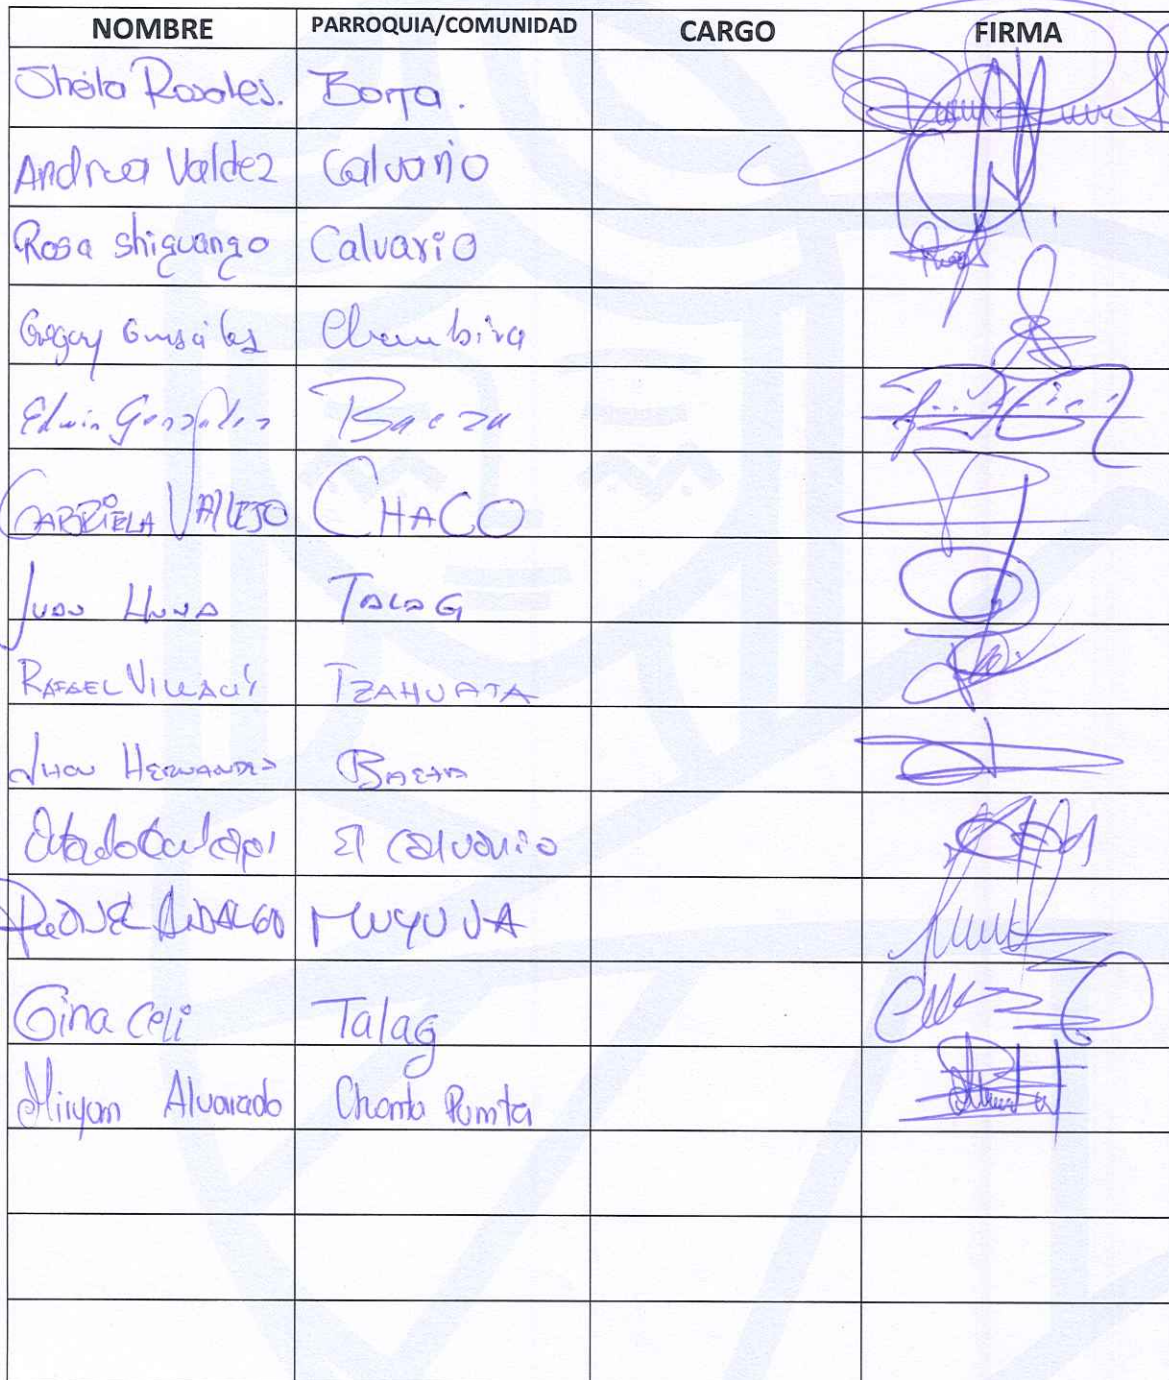 NOMBRE PARROQUIA/COMUNIDAD CARGO FIRMA
Sheila Rosales. Borja.
Andrea Valdez Calvario
Rosa Shiguango Calvario
Gregory Chambira
Edwin Gonzales Baeza
GABRIELA VALLEJO CHACO
JUAN TALAG
RAFAEL VILLACIS TZAHUATA
JHON HERNANDES BAEZA
El Calvario
HIDALGO MUYUNA
Gina Celi Talag
Miryam Alvarado Chonta Punta